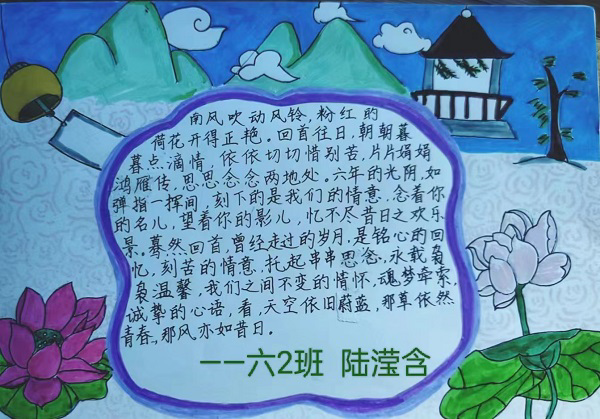 南风吹动风铃,粉红的
荷花开得正艳。回首往日,朝朝暮
暮点滴情,依依切切惜别苦,片片娟娟
鸿雁传,思思念念两地处。六年的光阴,如
弹指一挥间,刻下的是我们的情意,念着你
的名儿,望着你的影儿,忆不尽昔日之欢乐
景。蓦然回首,曾经走过的岁月,是铭心的回
忆,刻苦的情意,托起串串思念,永载袅
袅温馨,我们之间不变的情怀,魂梦牵索,
诚挚的心语,看,天空依旧蔚蓝,那草依然
青春,那风亦如昔日。
——六2班 陆滢含